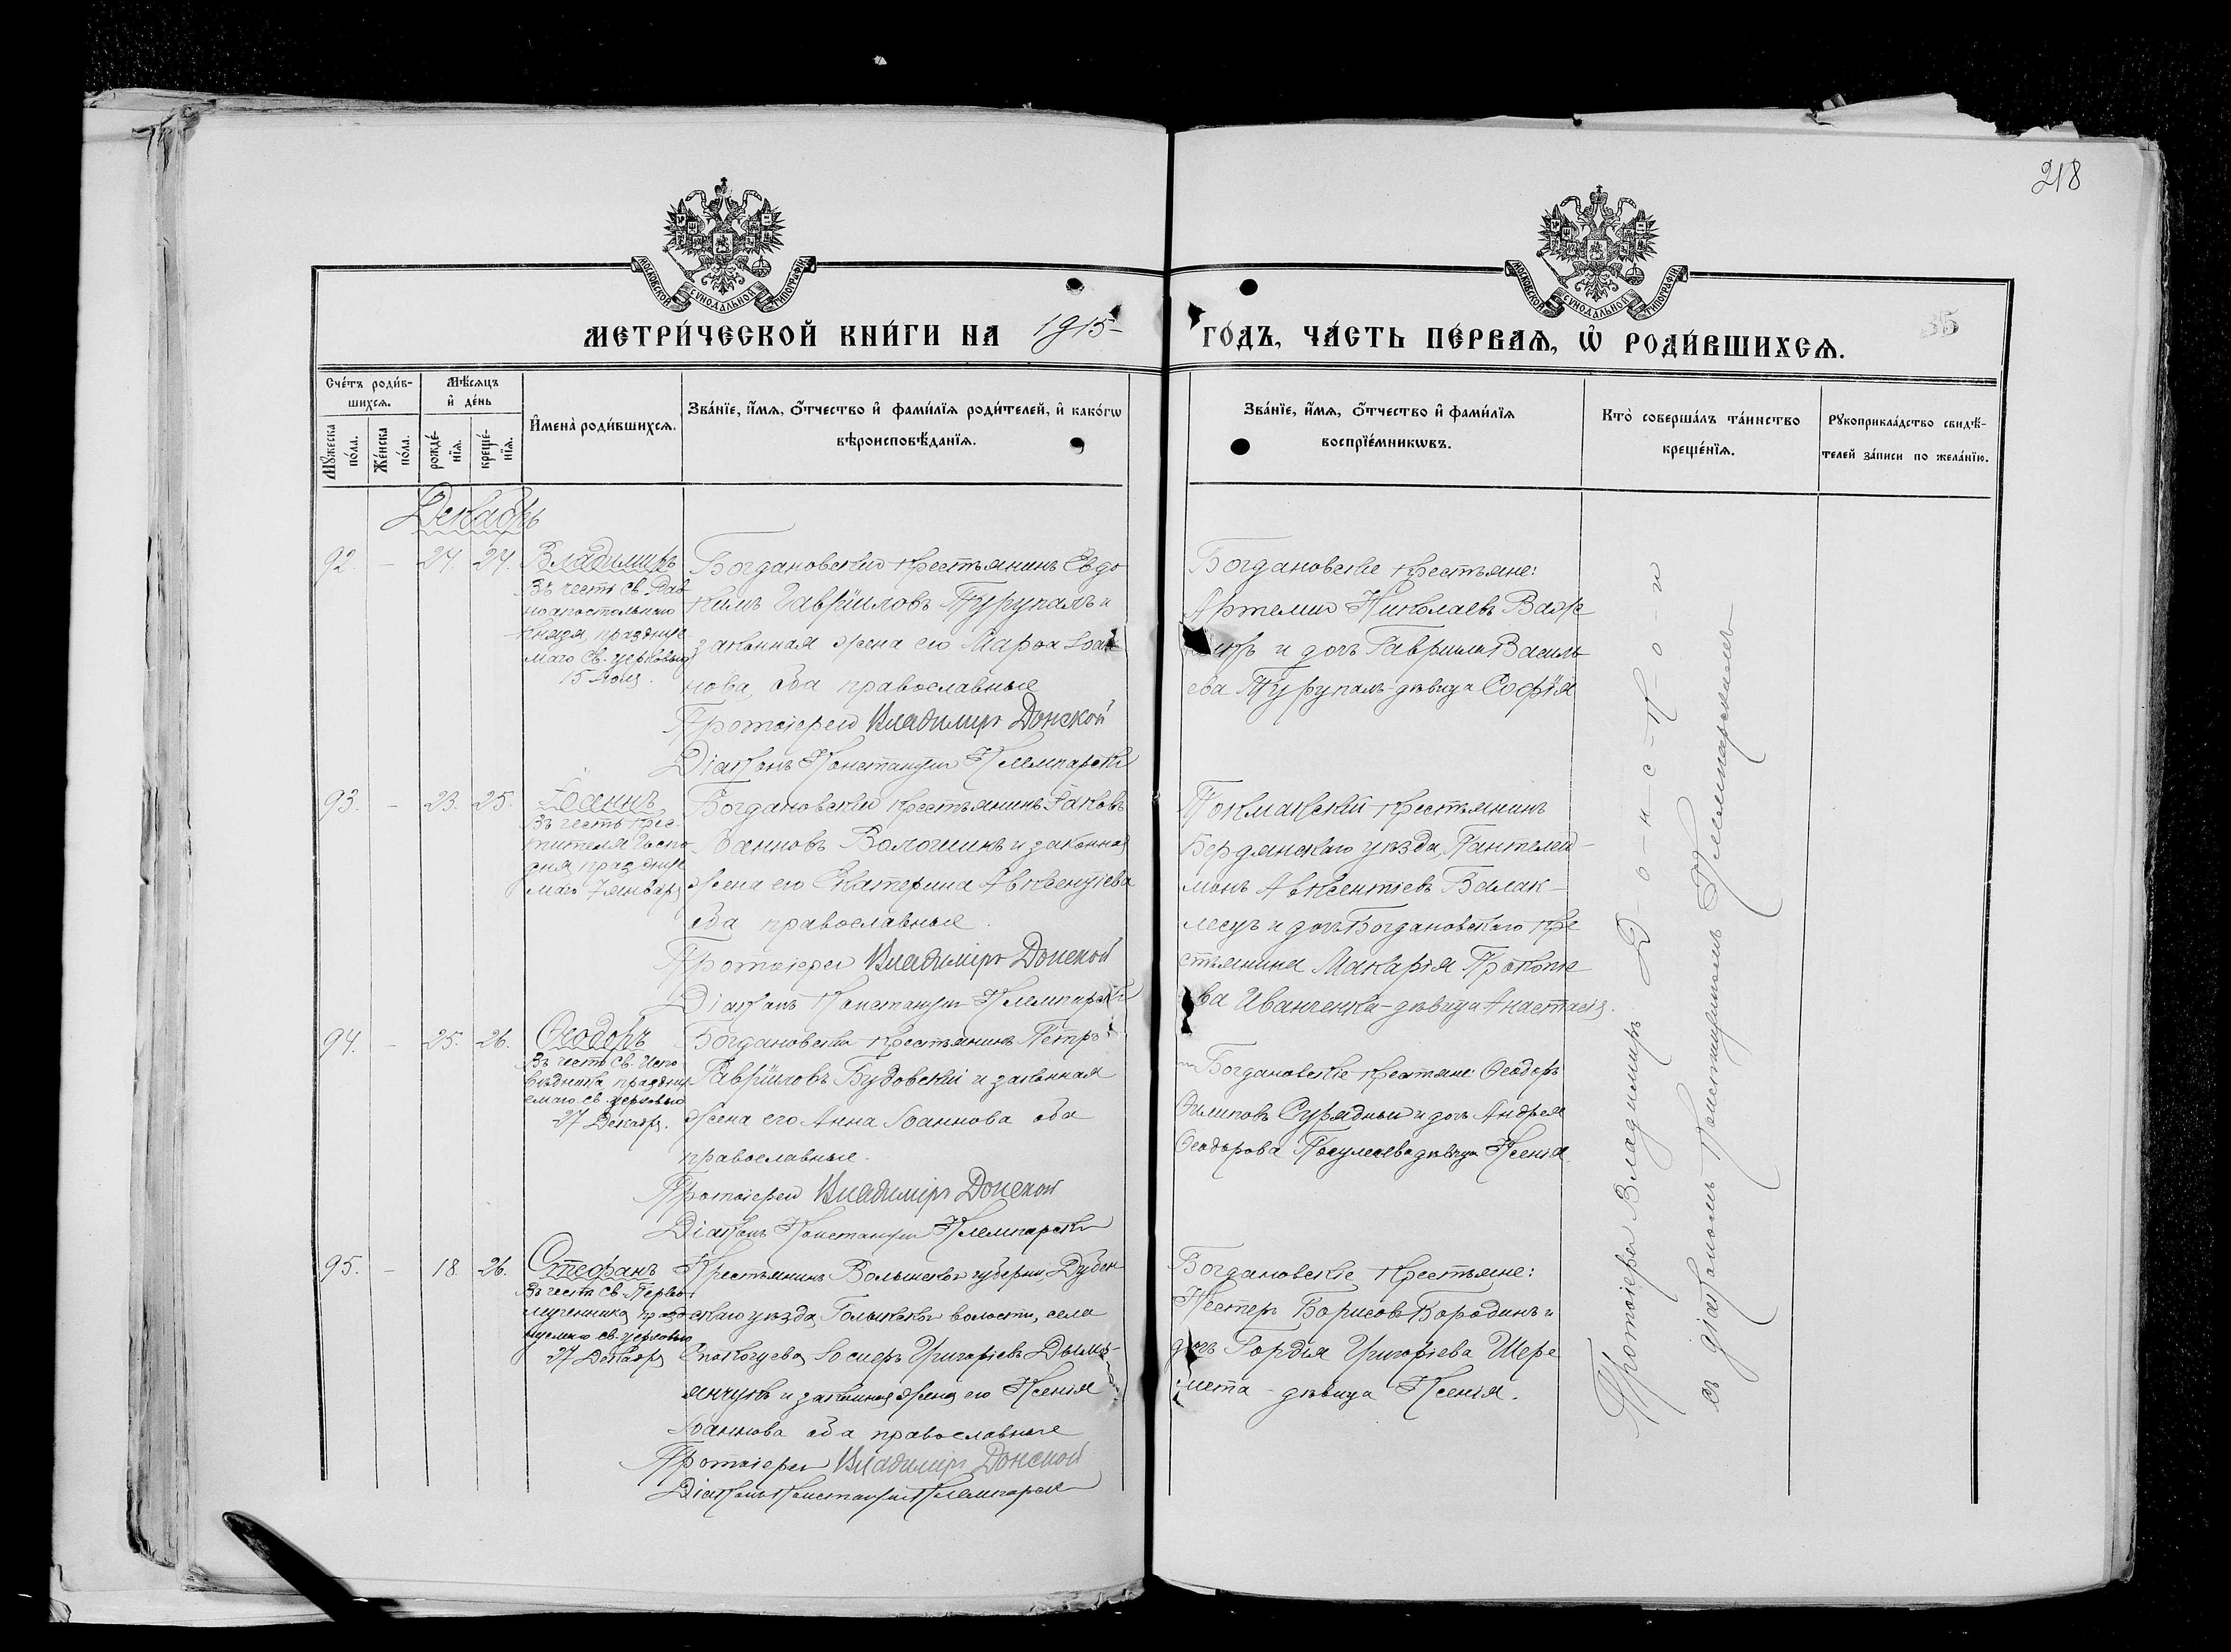 218
35
МОСКОВСКОЙ СѴНОДАЛЬНОЙ ТИПОГРАФІИ
МОСКОВСКОЙ СѴНОДАЛЬНОЙ ТИПОГРАФІИ
МЕТРИ́ЧЕСКОЙ КНИ́ГИ НА 1915 ГО́ДЪ, ЧА́СТЬ ПЕ́РВАѦ, Ѡ҆ РОДИ́ВШИХСѦ.
Сче́тъ роди́в-
шихсѧ.
Мꙋ́жеска по́ла.
Же́нска по́ла.
Мѣ́сѧцъ
и҆ де́нь
рожде́-
нїѧ.
креще́-
нїѧ.
И҆мена̀ роди́вшихсѧ.
Зва́нїе, и҆́мѧ, ѻ҆́тчество и҆ фами́лїѧ роди́телей, и҆ како́гѡ
вѣроисповѣ́данїѧ.
Зва́нїе, и҆́мѧ, ѻ҆́тчество и҆ фами́лїѧ
воспрїе́мникѡвъ.
Кто̀ соверша́лъ та́инство
креще́нїѧ.
Рꙋкоприкла́дство свидѣ́-
телей за́писи по жела́нїю.
Декабрь
92. - 24. 24. Владимиръ
Въ честь св. Рав
ноапостольнаго
Князя, праздну
маго св. церковью
15 Іюля.
Богдановскій крестьянинъ Евдо
кимъ Гавріиловъ Турупалъ и
законная жена его Марѳа Іоан
нова, оба православные
Протоіерей Владимиръ Донской
Діаконъ Константинъ
Богдановскіе крестьяне:
Артемій Николаевъ Важ
и дочь Гавріила Василь
ева Турупалъ - дѣвица Софія
93. - 23. 25. Іоаннъ
Въ честь Крес
тителя Госпо
дня, праздну
маго 7 января
Богдановскій крестьянинъ Іаковъ
Іоанновъ Волошинъ и законная
жена его Екатерина Авксентіева
оба православные.
Протоіерей Владиміръ Донской
Діаконъ Константинъ
Токмакскій крестьянинъ
Бердянскаго уѣзда, Пантелей-
монъ Авксентіевъ Балак-
лецъ и дочь Богдановскаго кре
стьянина Макарія Прокопіе
ва Иванченка - дѣвица Анастасія.
94. - 25. 26. Ѳеодоръ
Въ честь св. Испо
вѣдника, праздну
емаго св. церковью
27 Декабря.
Богдановскій крестьянинъ Петръ
Гавріиловъ Будовскій и законная
жена его Анна Іоаннова оба
православные.
Протоіерей Владиміръ Донской
Діаконъ Константинъ
Богдановскіе крестьяне: Ѳеодоръ
Филиповъ и дочь Андрея
Ѳеодорова дѣвица Ксенія
95. - 18. 26. Стефанъ
Въ честь св. Перво
мученника, празд
нуемаго св. церковью
27 Декабря
Крестьянинъ Волынской губерніи, Дубен
скаго уѣзда, волости, села
Григоріевъ
и законная жена его Ксенія
Іоаннова оба православные
Протоіерей Владиміръ Донской
Діаконъ Константинъ
Богдановскіе крестьяне:
Нестеръ Борисовъ Бородинъ и
дочь Гордія Григоріева Шере
мета - дѣвица Ксенія.
Протоіерей Владимиръ Д-о-н-с-к-о-й
съ діакономъ Константиномъ